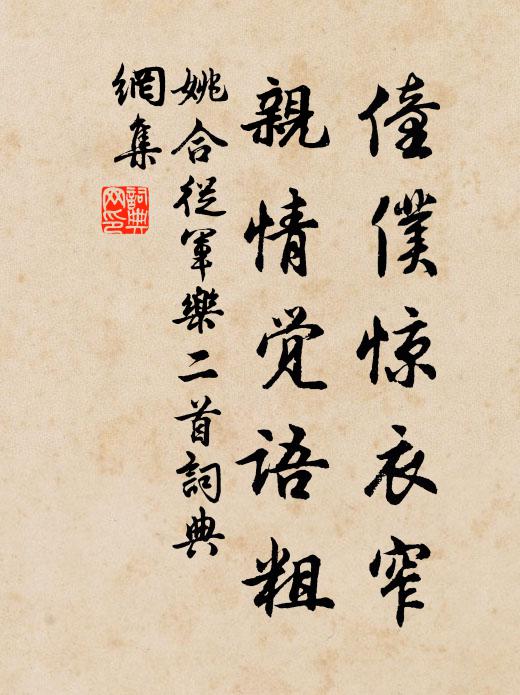 僮僕惊衣窄
親情觉語粗
姚合從軍樂二首詞典
網集
詞典
网印